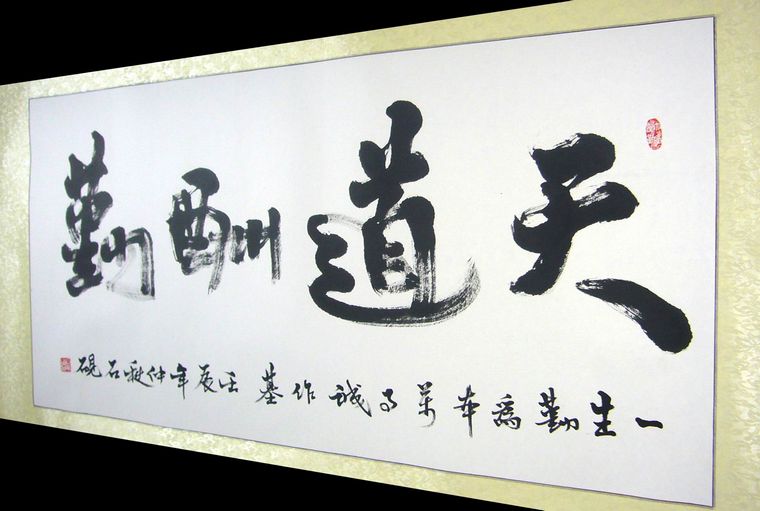 天道酬勤
一生勤為本 萬事誠作基 壬辰年仲秋石硯